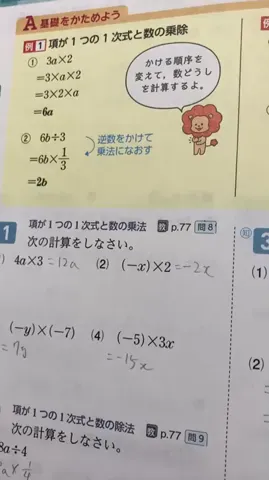 A 基礎をかためよう
例 1 項が1つの1次式と数の乗除
① 3a×2
=3×a×2
=3×2×a
=6a
かける順序を
変えて,数どうし
を計算するよ。
② 6b÷3
=6b×1/3
=2b
逆数をかけて
乗法になおす
1 項が1つの1次式と数の乗法 教 p.77 問8
次の計算をしなさい。
) 4a×3 =12a (2) (-x)×2 =-2x
(-y)×(-7) (4) (-5)×3x
=7y =-15x
項が1つの1次式と数の除法 教 p.77 問9
次の計算をしなさい。
8a÷4
a×1/4
3
(1)
(2)